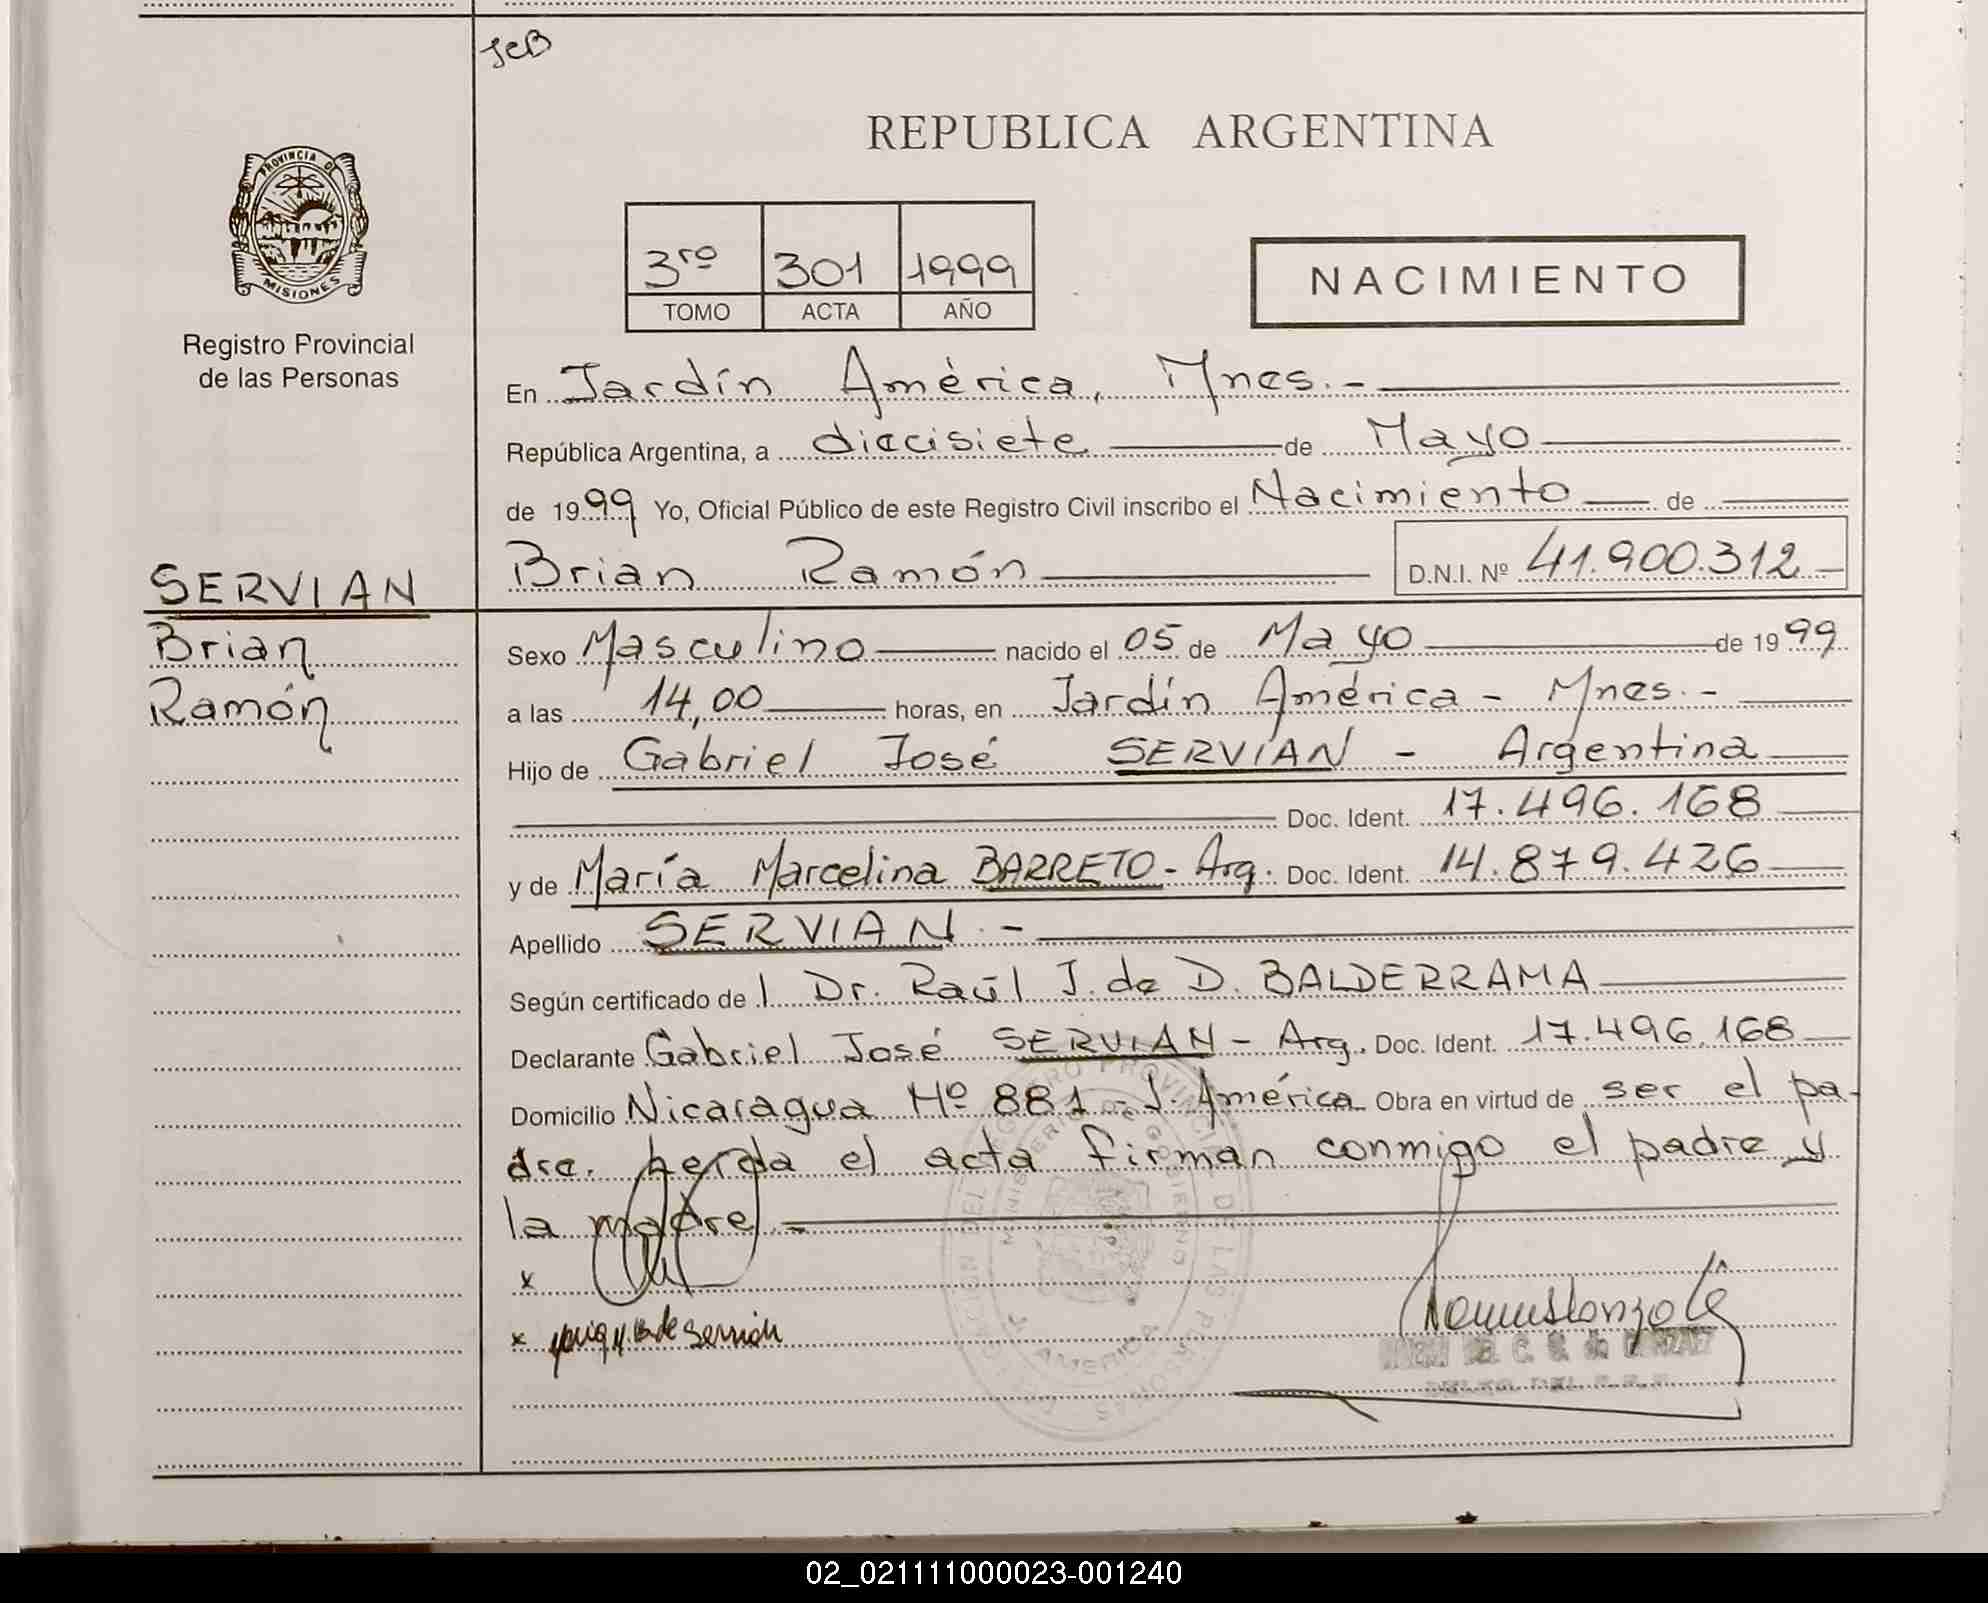 JCB
REPUBLICA ARGENTINA
PROVINCIA DE
MISIONES
Registro Provincial
de las Personas
3ro 301 1999
TOMO ACTA AÑO
NACIMIENTO
En Jardín América, Mnes.-
República Argentina, a diecisiete de Mayo
de 1999 Yo, Oficial Público de este Registro Civil inscribo el Nacimiento de
Brian Ramón D.N.I. Nº 41.900.312
SERVIAN
Brian
Ramón
Sexo Masculino nacido el 05 de Mayo de 1999
a las 14,00 horas, en Jardín América - Mnes.-
Hijo de Gabriel José SERVIAN - Argentina
Doc. Ident. 17.496.168
y de María Marcelina BARRETO - Arg. Doc. Ident. 14.879.426
Apellido SERVIAN.-
Según certificado de l Dr. Raúl J. de D. BALDERRAMA
Declarante Gabriel José SERVIAN - Arg. Doc. Ident. 17.496.168
Domicilio Nicaragua Nº 881 - J. América Obra en virtud de ser el pa-
dre. el acta firman conmigo el padre y
la madre.-
x
x de Servián
MINISTERIO DE GOBIERNO
AMERICA
02_021111000023-001240